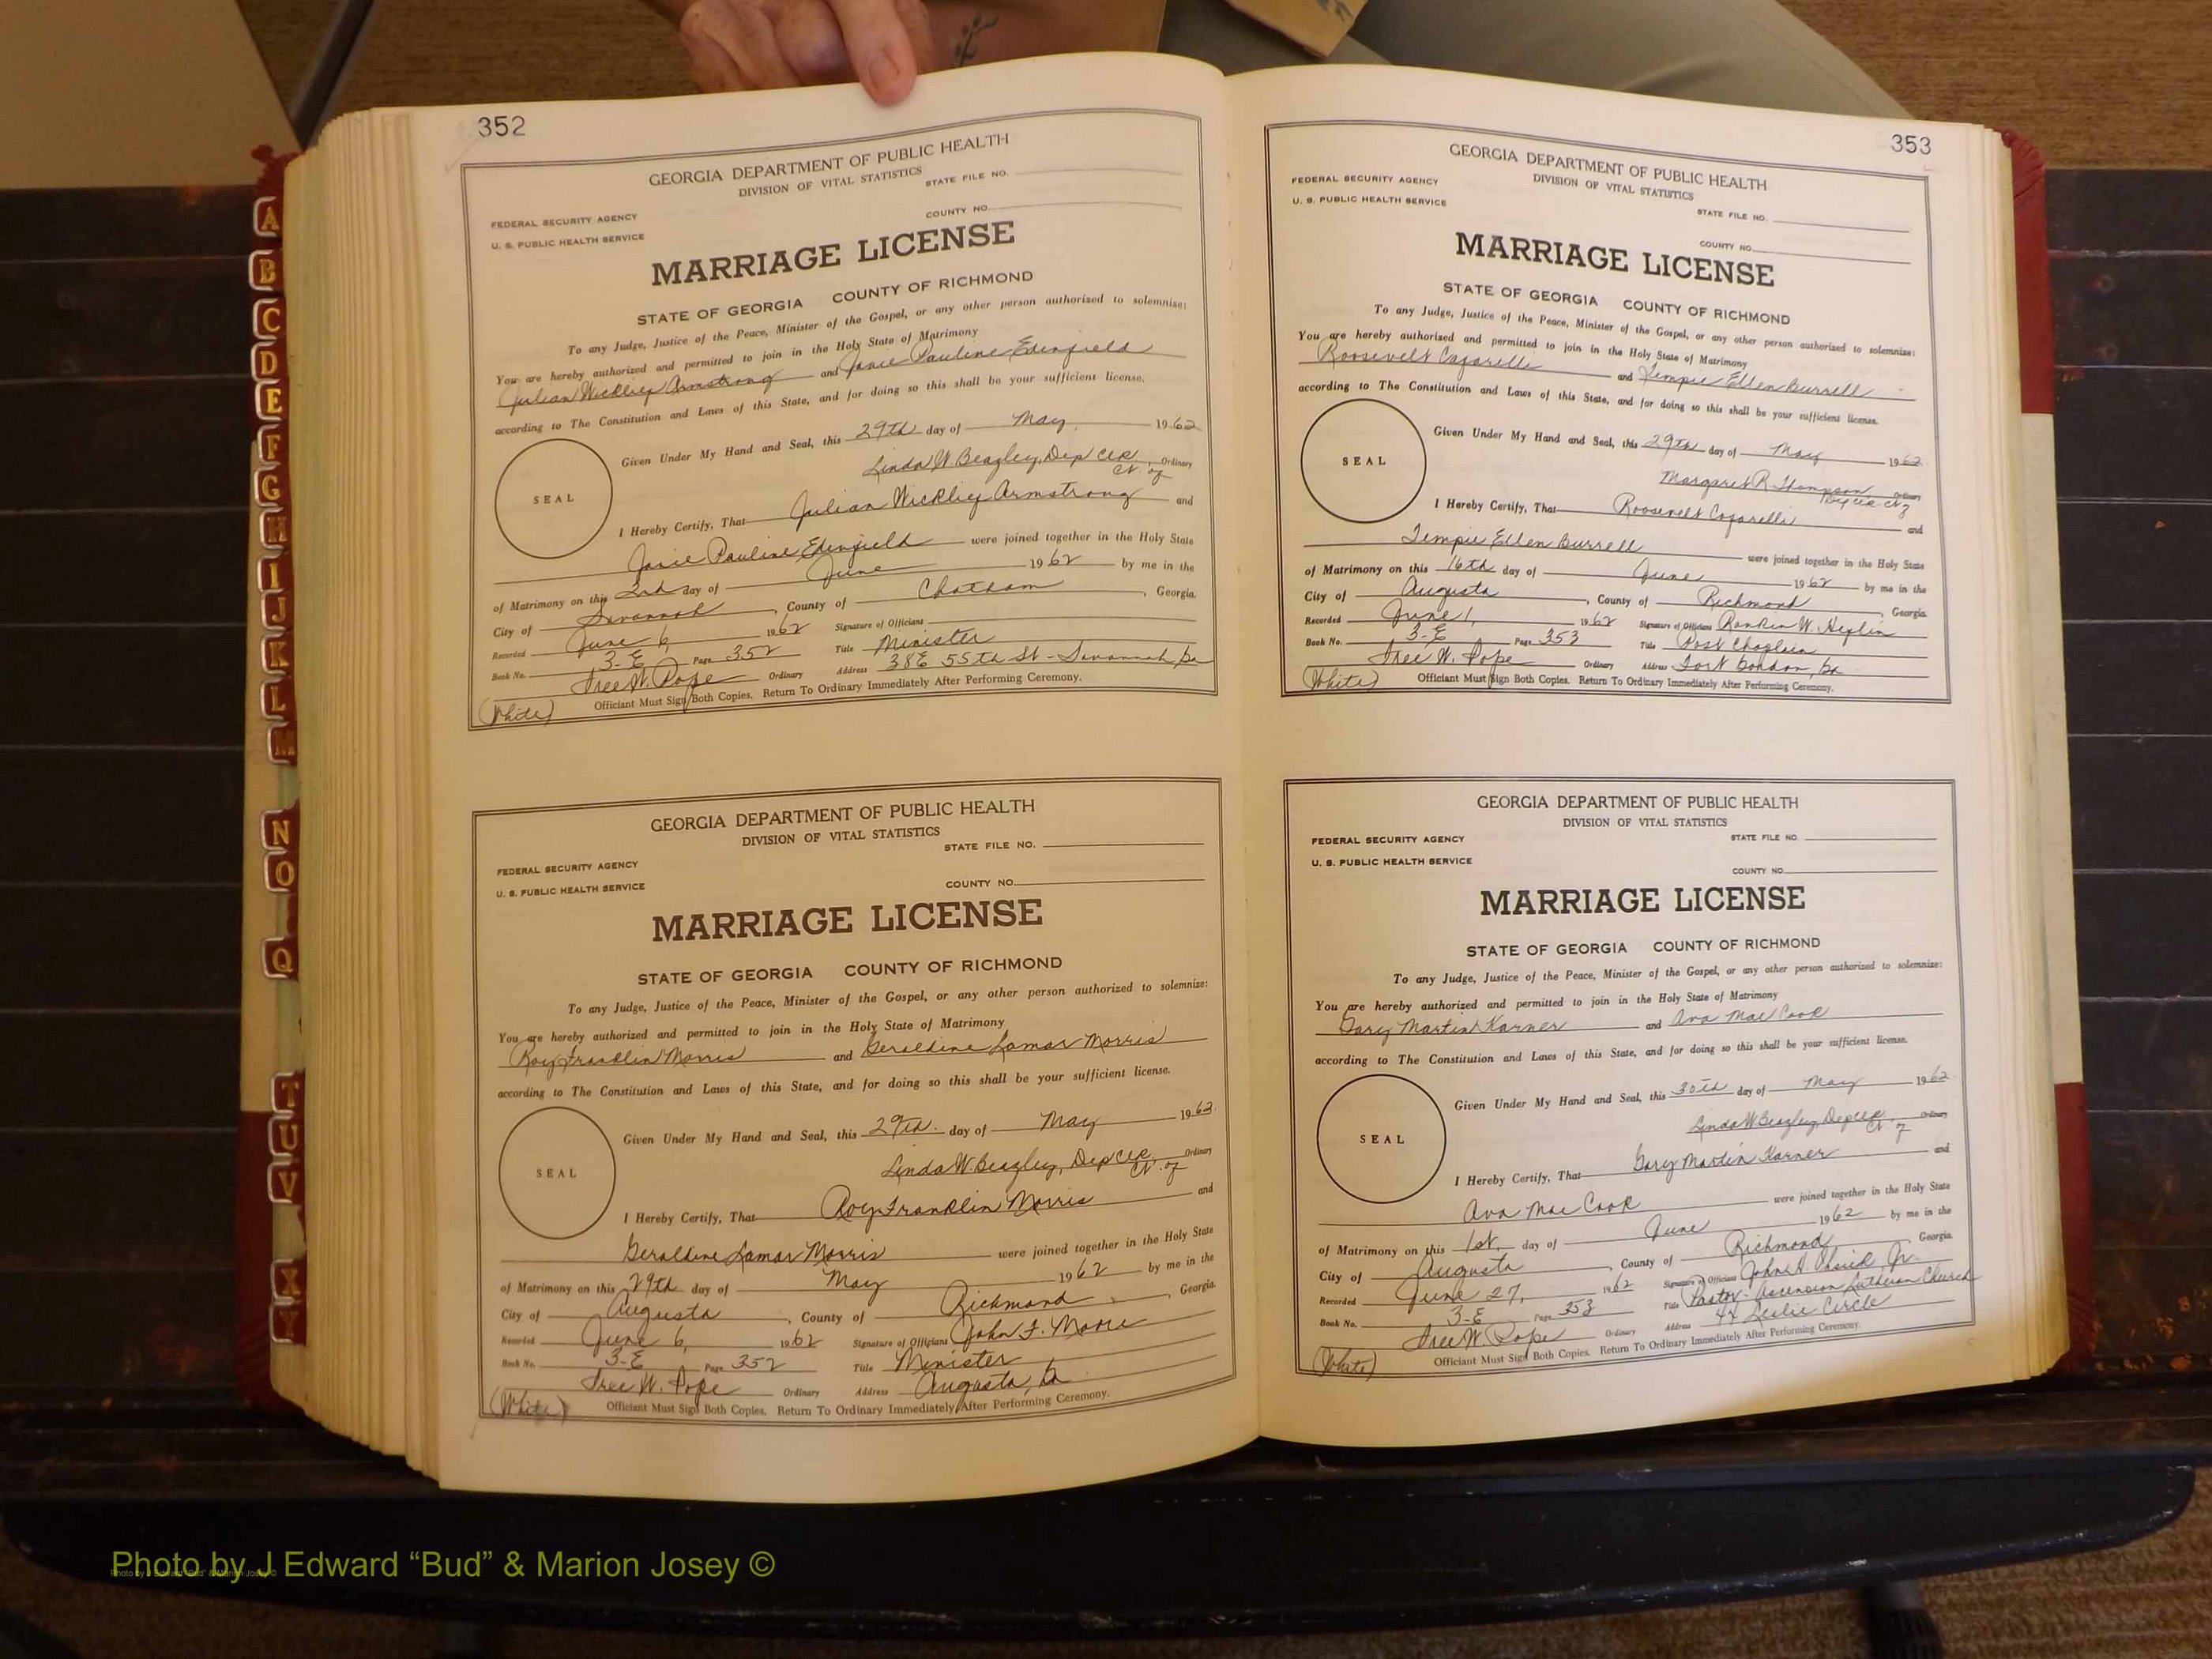 352
GEORGIA DEPARTMENT OF PUBLIC HEALTH
DIVISION OF VITAL STATISTICS
STATE FILE NO.
FEDERAL SECURITY AGENCY
COUNTY NO.
U. S. PUBLIC HEALTH SERVICE
MARRIAGE LICENSE
STATE OF GEORGIA COUNTY OF RICHMOND
To any Judge, Justice of the Peace, Minister of the Gospel, or any other person authorized to solemnize:
You are hereby authorized and permitted to join in the Holy State of Matrimony
Julian Wicklief Armstrong and Janie Pauline Edenfield
according to The Constitution and Laws of this State, and for doing so this shall be your sufficient license.
Given Under My Hand and Seal, this 29th day of May 1962
Linda W Beazley, Dep Clk, Ordinary
Ct. of
SEAL
I Hereby Certify, That Julian Wicklief Armstrong and
Janie Pauline Edenfield were joined together in the Holy State
of Matrimony on this 2nd day of June 1962 by me in the
City of Savannah, County of Chatham, Georgia.
Recorded June 6, 1962 Signature of Officiant
Book No. 3-E Page 352 Title Minister
Tree W. Pope Ordinary Address 38 E 55th St - Savannah, Ga
(White) Officiant Must Sign Both Copies. Return To Ordinary Immediately After Performing Ceremony.
GEORGIA DEPARTMENT OF PUBLIC HEALTH
DIVISION OF VITAL STATISTICS
STATE FILE NO.
FEDERAL SECURITY AGENCY
COUNTY NO.
U. S. PUBLIC HEALTH SERVICE
MARRIAGE LICENSE
STATE OF GEORGIA COUNTY OF RICHMOND
To any Judge, Justice of the Peace, Minister of the Gospel, or any other person authorized to solemnize:
You are hereby authorized and permitted to join in the Holy State of Matrimony
Roy Franklin Morris and Geraldine Lamar Morris
according to The Constitution and Laws of this State, and for doing so this shall be your sufficient license.
Given Under My Hand and Seal, this 29th. day of May 1962
Linda W. Beazley, Dep Clk, Ordinary
Ct. of
SEAL
I Hereby Certify, That Roy Franklin Morris and
Geraldine Lamar Morris were joined together in the Holy State
of Matrimony on this 29th day of May 1962 by me in the
City of Augusta, County of Richmond, Georgia.
Recorded June 6, 1962 Signature of Officiant John F. Moore
Book No. 3-E Page 352 Title Minister
Tree W. Pope Ordinary Address Augusta, Ga
(White) Officiant Must Sign Both Copies. Return To Ordinary Immediately After Performing Ceremony.
353
GEORGIA DEPARTMENT OF PUBLIC HEALTH
DIVISION OF VITAL STATISTICS
FEDERAL SECURITY AGENCY
STATE FILE NO.
U. S. PUBLIC HEALTH SERVICE
COUNTY NO.
MARRIAGE LICENSE
STATE OF GEORGIA COUNTY OF RICHMOND
To any Judge, Justice of the Peace, Minister of the Gospel, or any other person authorized to solemnize:
You are hereby authorized and permitted to join in the Holy State of Matrimony
Roosevelt Cazarelli and Tempie Ellen Burrell
according to The Constitution and Laws of this State, and for doing so this shall be your sufficient license.
Given Under My Hand and Seal, this 29th day of May 1962
Margaret R. Thompson, Ordinary
Dep Clk. Ct of
SEAL
I Hereby Certify, That Roosevelt Cazarelli and
Tempie Ellen Burrell were joined together in the Holy State
of Matrimony on this 16th day of June 1962 by me in the
City of Augusta, County of Richmond, Georgia
Recorded June 1, 1962 Signature of Officiant Rankin W. Heflin
Book No. 3-E Page 353 Title Post Chaplain
Tree W. Pope Ordinary Address Fort Gordon, Ga
(White) Officiant Must Sign Both Copies. Return To Ordinary Immediately After Performing Ceremony.
GEORGIA DEPARTMENT OF PUBLIC HEALTH
DIVISION OF VITAL STATISTICS
FEDERAL SECURITY AGENCY STATE FILE NO.
U. S. PUBLIC HEALTH SERVICE
COUNTY NO.
MARRIAGE LICENSE
STATE OF GEORGIA COUNTY OF RICHMOND
To any Judge, Justice of the Peace, Minister of the Gospel, or any other person authorized to solemnize:
You are hereby authorized and permitted to join in the Holy State of Matrimony
Gary Martin Karner and Ava Mae Cook
according to The Constitution and Laws of this State, and for doing so this shall be your sufficient license.
Given Under My Hand and Seal, this 30th day of May 1962
Linda W Beazley, Dep Clk, Ordinary
Ct of
SEAL
I Hereby Certify, That Gary Martin Karner and
Ava Mae Cook were joined together in the Holy State
of Matrimony on this 1st. day of June 1962 by me in the
City of Augusta, County of Richmond, Georgia
Recorded June 27, 1962 Signature of Officiant John H. Jr.
Book No. 3-E Page 353 Title Pastor - Ascension Lutheran Church
Tree W. Pope Ordinary Address 44 Leslie Circle
(White) Officiant Must Sign Both Copies. Return To Ordinary Immediately After Performing Ceremony.
A
B
C
D
E
F
G
H
I
J
K
L
M
N
O
Q
T
U
V
X
Y
Photo by J Edward “Bud” & Marion Josey ©
Photo by J Edward “Bud” & Marion Josey ©